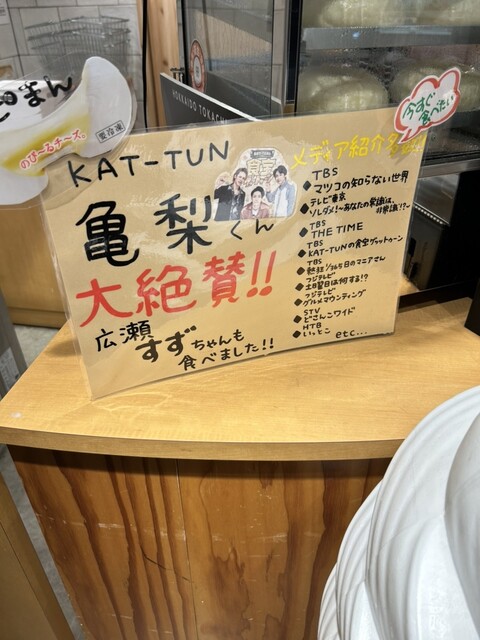 まん
のび〜るチーズ。
要冷凍
HOKKAIDO TOKACHI
今すぐ
食べたい
KAT-TUN
亀梨くん
大絶賛!!
広瀬すずちゃんも
食べました!!
メディア紹介多数!!
TBS
マツコの知らない世界
テレビ東京
ソレダメ!〜あなたの常識は、
非常識!?〜
TBS
THE TIME
TBS
KAT-TUNの食宝ゲットゥーン
TBS
熱狂1/365日のマニアさん
フジテレビ
土曜日は何する!?
フジテレビ
グルメマウンティング
STV
どさんこワイド
HTB
いっとこ
etc...